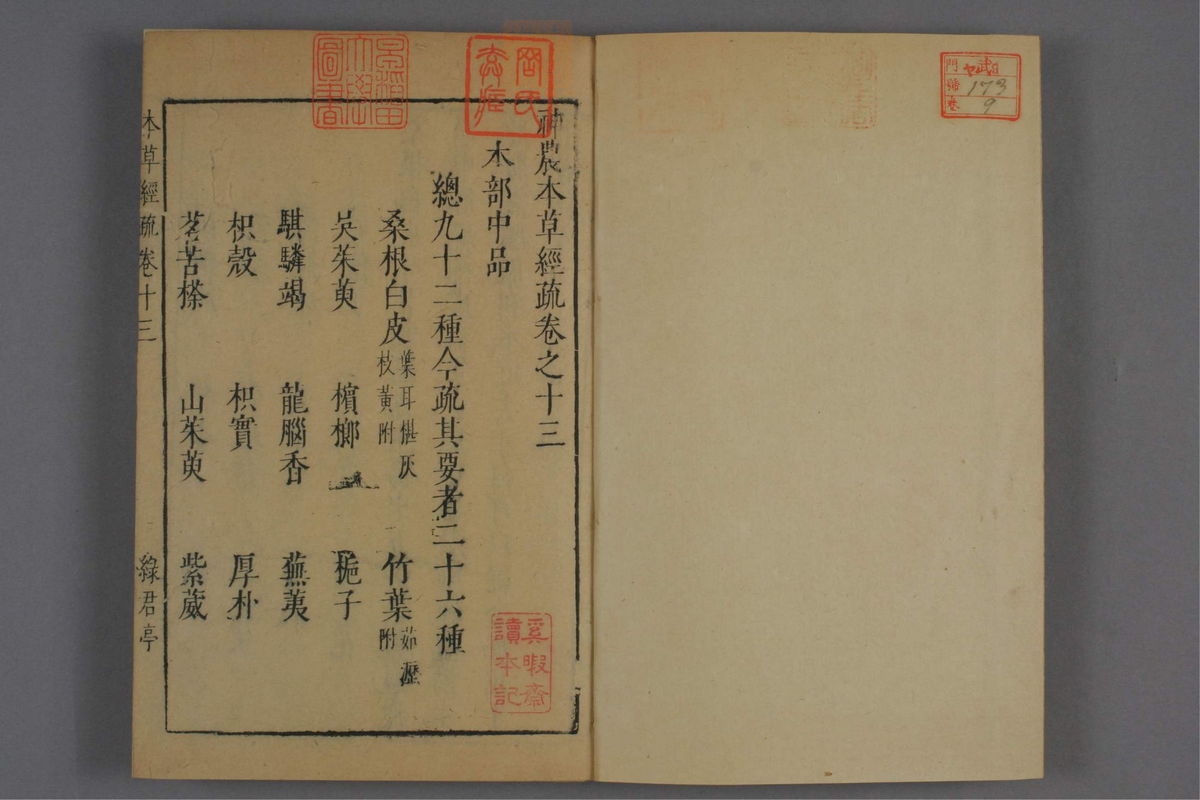 神農本草經疏卷之十三
木部中品
總九十二種今疏其要者二十六種
桑根白皮 葉耳椹灰枝黃附 竹葉 茹瀝附
吳茱萸 檳榔 梔子
騏驎竭 龍腦香 蕪荑
枳殼 枳實 厚朴
茗苦㯂 山茱萸 紫葳
本草經疏卷十三 綠君亭
早稻田大學圖書
奚暇齋讀本記
門 號 卷
173
9